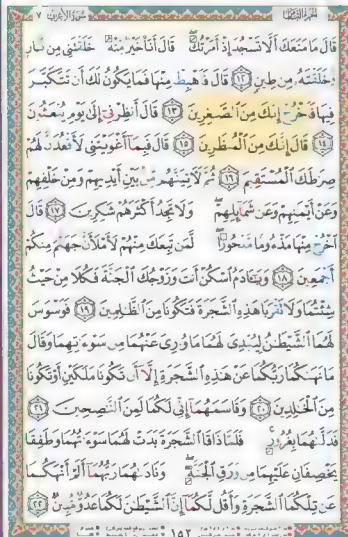 الجزء الثامن سورة الأعراف ٧
قَالَ مَا مَنَعَكَ أَلَّا تَسْجُدَ إِذْ أَمَرْتُكَ ۖ قَالَ أَنَا۠ خَيْرٌ مِّنْهُ خَلَقْتَنِى مِن نَّارٍ
وَخَلَقْتَهُۥ مِن طِينٍ ﴿١٢﴾ قَالَ فَٱهْبِطْ مِنْهَا فَمَا يَكُونُ لَكَ أَن تَتَكَبَّرَ
فِيهَا فَٱخْرُجْ إِنَّكَ مِنَ ٱلصَّٰغِرِينَ ﴿١٣﴾ قَالَ أَنظِرْنِىٓ إِلَىٰ يَوْمِ يُبْعَثُونَ
﴿١٤﴾ قَالَ إِنَّكَ مِنَ ٱلْمُنظَرِينَ ﴿١٥﴾ قَالَ فَبِمَآ أَغْوَيْتَنِى لَأَقْعُدَنَّ لَهُمْ
صِرَٰطَكَ ٱلْمُسْتَقِيمَ ﴿١٦﴾ ثُمَّ لَءَاتِيَنَّهُم مِّنۢ بَيْنِ أَيْدِيهِمْ وَمِنْ خَلْفِهِمْ
وَعَنْ أَيْمَٰنِهِمْ وَعَن شَمَآئِلِهِمْ ۖ وَلَا تَجِدُ أَكْثَرَهُمْ شَٰكِرِينَ ﴿١٧﴾ قَالَ
ٱخْرُجْ مِنْهَا مَذْءُومًا مَّدْحُورًا ۖ لَّمَن تَبِعَكَ مِنْهُمْ لَأَمْلَأَنَّ جَهَنَّمَ مِنكُمْ
أَجْمَعِينَ ﴿١٨﴾ وَيَٰٓـَٔادَمُ ٱسْكُنْ أَنتَ وَزَوْجُكَ ٱلْجَنَّةَ فَكُلَا مِنْ حَيْثُ
شِئْتُمَا وَلَا تَقْرَبَا هَٰذِهِ ٱلشَّجَرَةَ فَتَكُونَا مِنَ ٱلظَّٰلِمِينَ ﴿١٩﴾ فَوَسْوَسَ
لَهُمَا ٱلشَّيْطَٰنُ لِيُبْدِىَ لَهُمَا مَا وُۥرِىَ عَنْهُمَا مِن سَوْءَٰتِهِمَا وَقَالَ
مَا نَهَىٰكُمَا رَبُّكُمَا عَنْ هَٰذِهِ ٱلشَّجَرَةِ إِلَّآ أَن تَكُونَا مَلَكَيْنِ أَوْ تَكُونَا
مِنَ ٱلْخَٰلِدِينَ ﴿٢٠﴾ وَقَاسَمَهُمَآ إِنِّى لَكُمَا لَمِنَ ٱلنَّٰصِحِينَ ﴿٢١﴾
فَدَلَّىٰهُمَا بِغُرُورٍ ۚ فَلَمَّا ذَاقَا ٱلشَّجَرَةَ بَدَتْ لَهُمَا سَوْءَٰتُهُمَا وَطَفِقَا
يَخْصِفَانِ عَلَيْهِمَا مِن وَرَقِ ٱلْجَنَّةِ ۖ وَنَادَىٰهُمَا رَبُّهُمَآ أَلَمْ أَنْهَكُمَا
عَن تِلْكُمَا ٱلشَّجَرَةِ وَأَقُل لَّكُمَآ إِنَّ ٱلشَّيْطَٰنَ لَكُمَا عَدُوٌّ مُّبِينٌ ﴿٢٢﴾
١٥٢